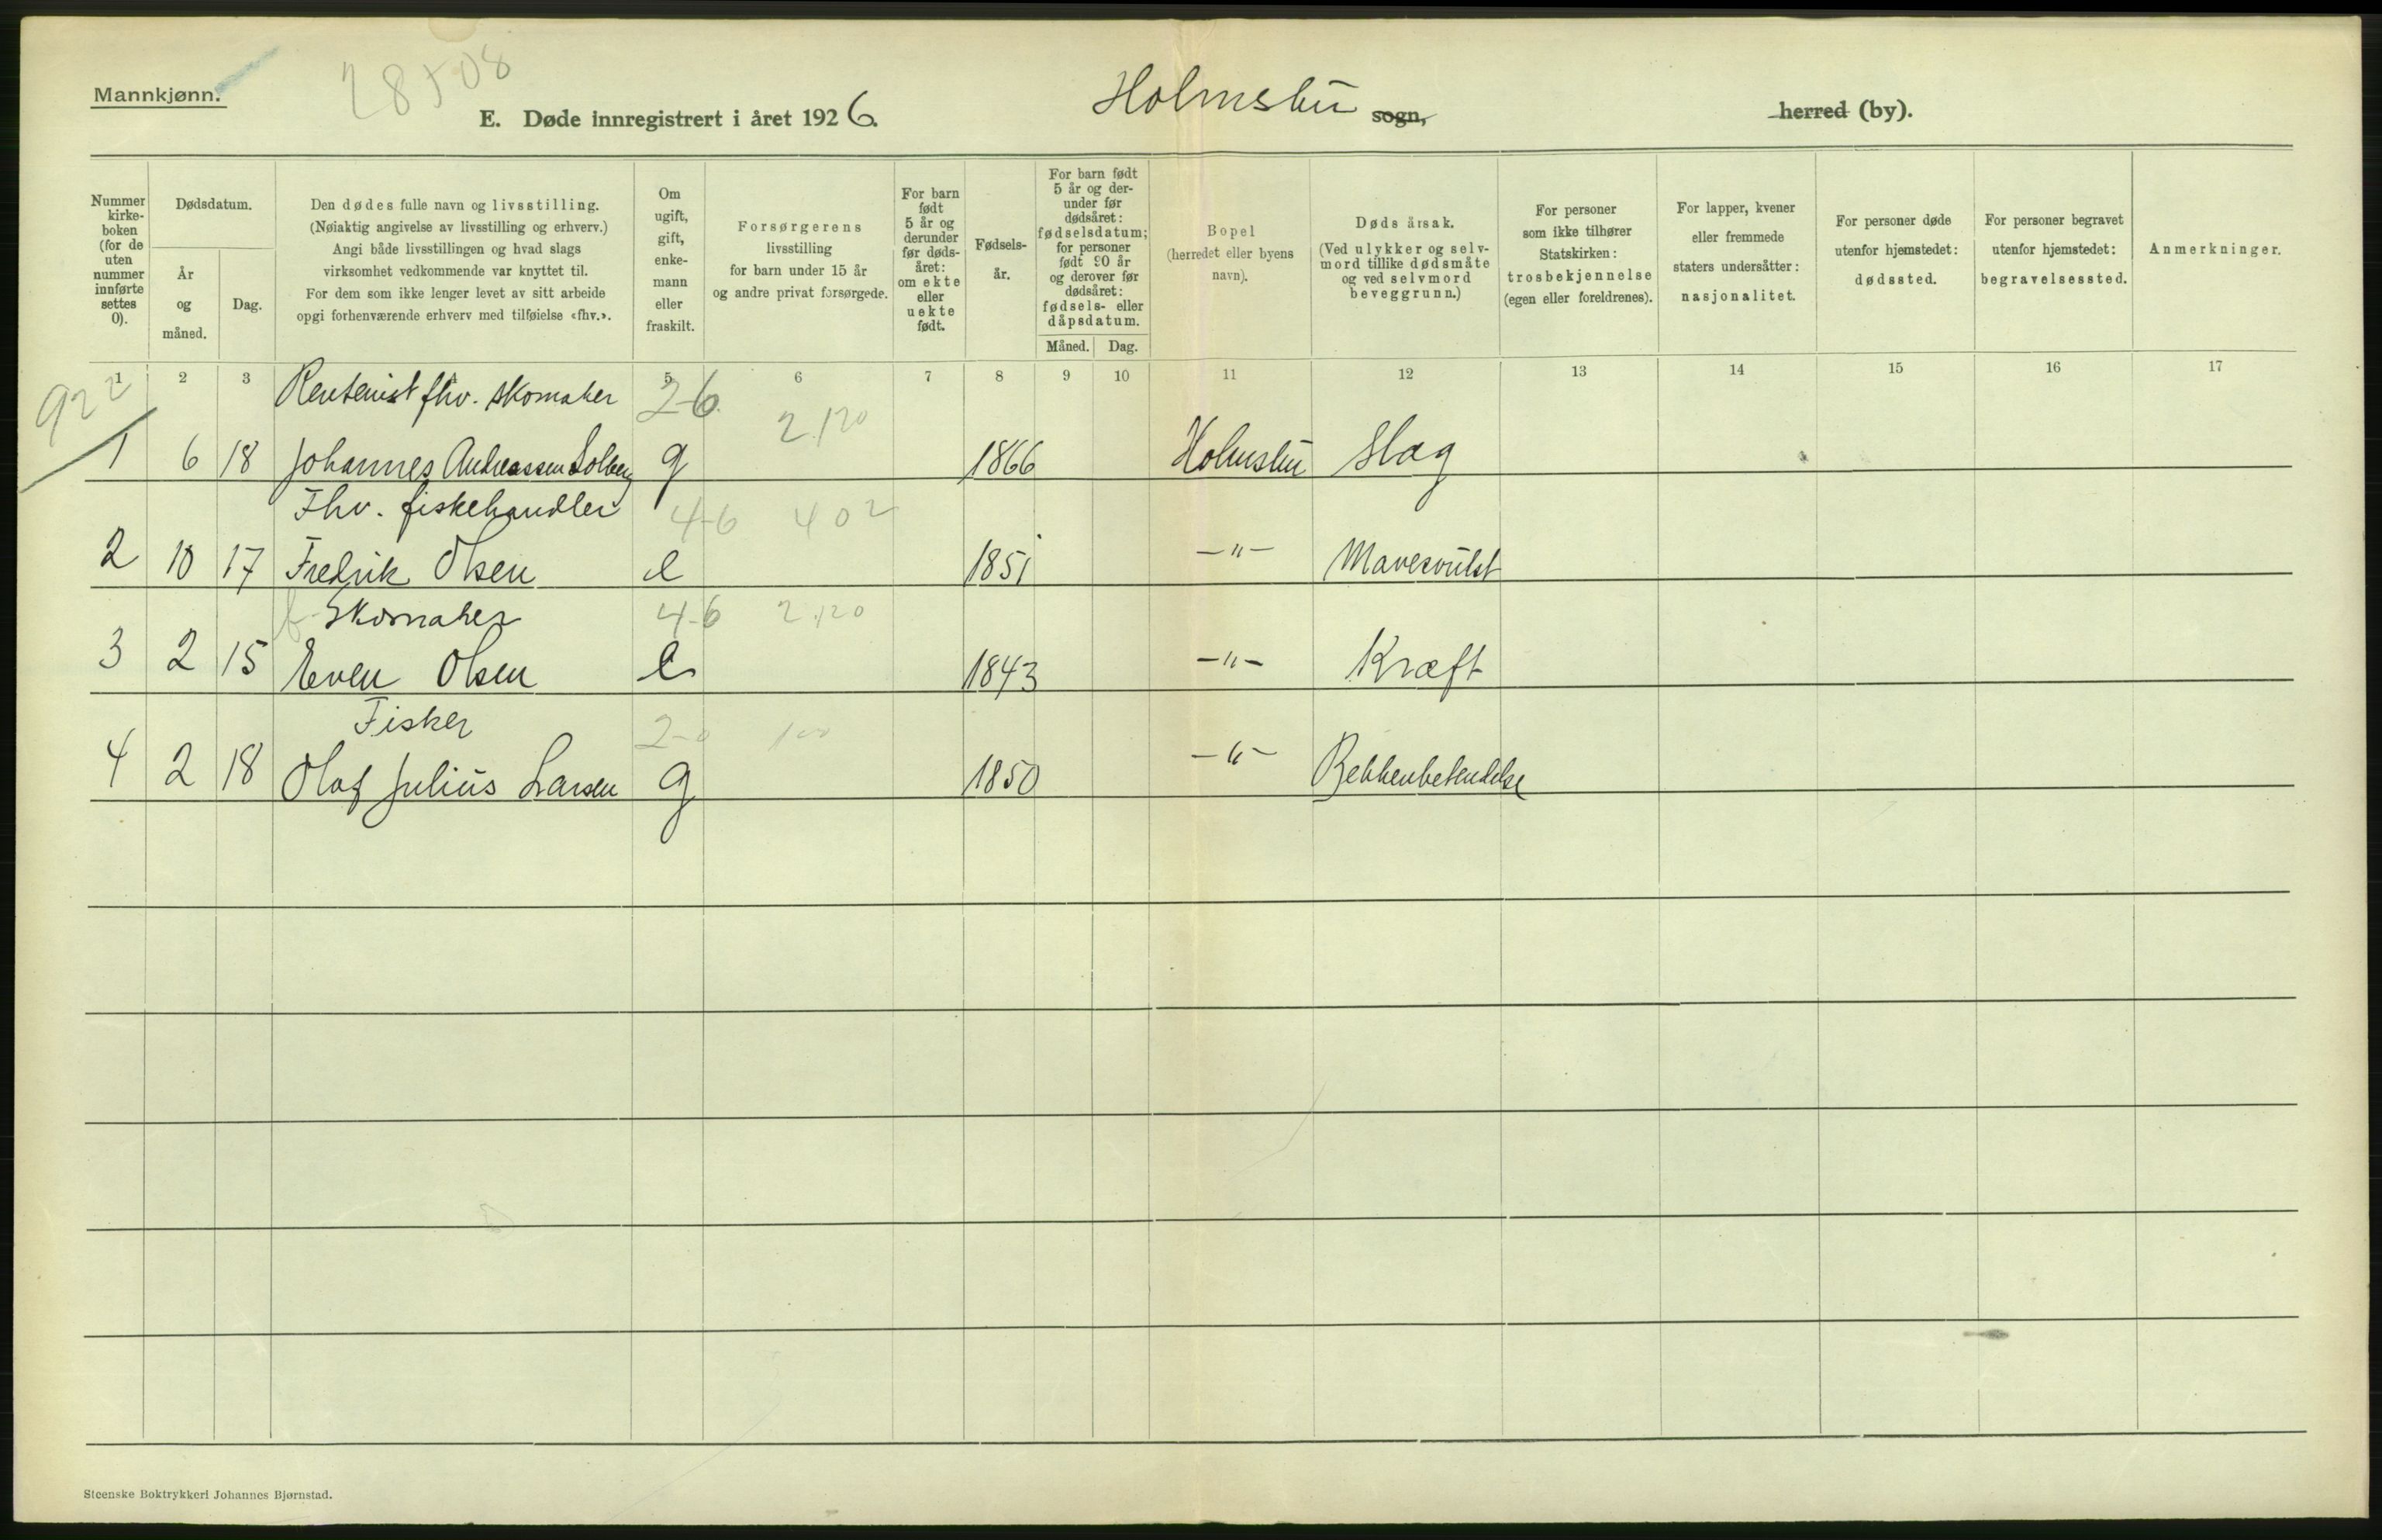 Mannkjønn.
28508
E. Døde innregistrert i året 1926.
Holmsbu sogn, herred (by).
Nummer kirke-boken (for de uten nummer innførte settes 0).
Dødsdatum.
År og måned.
Dag.
Den dødes fulle navn og livsstilling.
(Nøiaktig angivelse av livsstilling og erhverv.)
Angi både livsstillingen og hvad slags
virksomhet vedkommende var knyttet til.
For dem som ikke lenger levet av sitt arbeide
opgi forhenværende erhverv med tilføielse «fhv.».
Om ugift, gift, enke-mann eller fraskilt.
Forsørgerens
livsstilling
for barn under 15 år
og andre privat forsørgede.
For barn født 5 år og derunder før døds-året: om ekte eller uekte født.
Fødsels-år.
For barn født 5 år og der-under før dødsåret: fødselsdatum; for personer født 90 år og derover før dødsåret: fødsels- eller dåpsdatum.
Måned. Dag.
Bopel
(herredet eller byens
navn).
Dødsårsak.
(Ved ulykker og selv-
mord tillike dødsmåte
og ved selvmord
beveggrunn.)
For personer
som ikke tilhører
Statskirken:
trosbekjennelse
(egen eller foreldrenes).
For lapper, kvener
eller fremmede
staters undersåtter:
nasjonalitet.
For personer døde
utenfor hjemstedet:
dødssted.
For personer begravet
utenfor hjemstedet:
begravelsessted.
Anmerkninger.
1 2 3 5 6 7 8 9 10 11 12 13 14 15 16 17
922
Rentenist fhv. skomaker 2-6 2.120
1 6 18 Johannes Andreassen Solberg g 1866 Holmsbu Slag
Fhv. fiskehandler 4-6 402
2 10 17 Fredrik Olsen e 1851 -"- Mavesvulst
f. Skomaker 4-6 2.120
3 2 15 Even Olsen e 1843 -"- Kræft
Fisker 2-0 100
4 2 18 Olaf Julius Larsen g 1850 -"- Bekkenbetendelse
Steenske Boktrykkeri Johannes Bjørnstad.